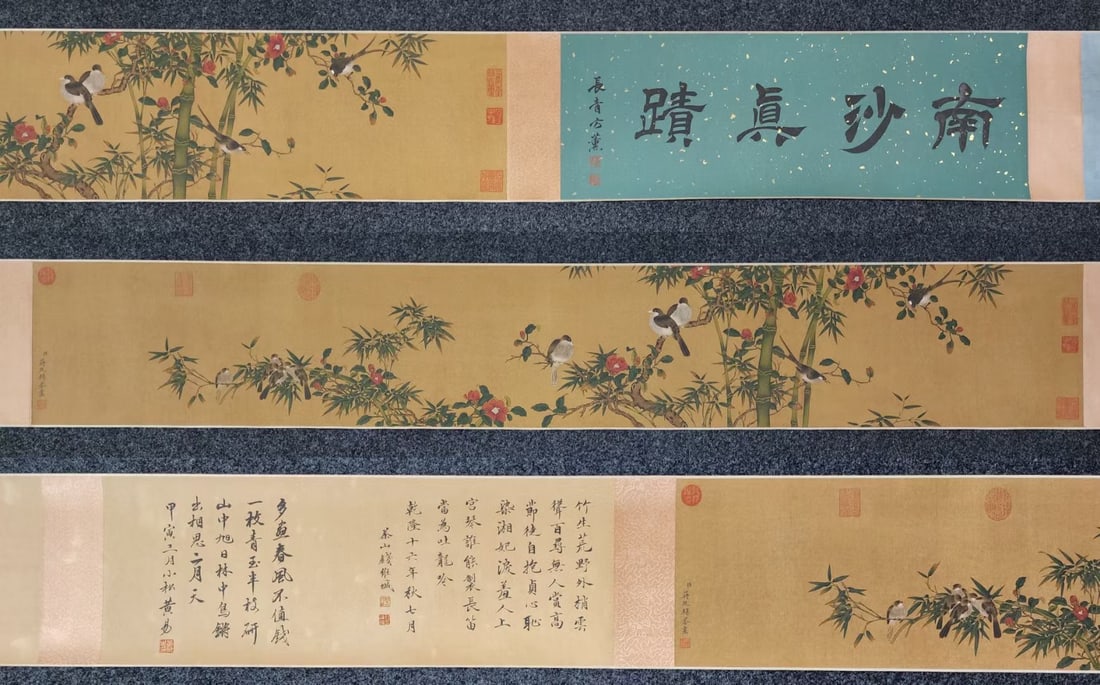 南沙眞蹟
長青方薰
臣蔣廷錫恭畫
竹生荒野外梢雲
聳百尋無人賞高
節徒自抱貞心恥
染湘妃淚羞入上
宮琴誰能製長笛
當為吐龍吟
乾隆十六年秋七月
茶山錢維城
多畫春風不值錢
一枝青玉半枝妍
山中旭日林中鳥銜
出相思二月天
甲寅二月小松黃易
臣蔣廷錫恭畫